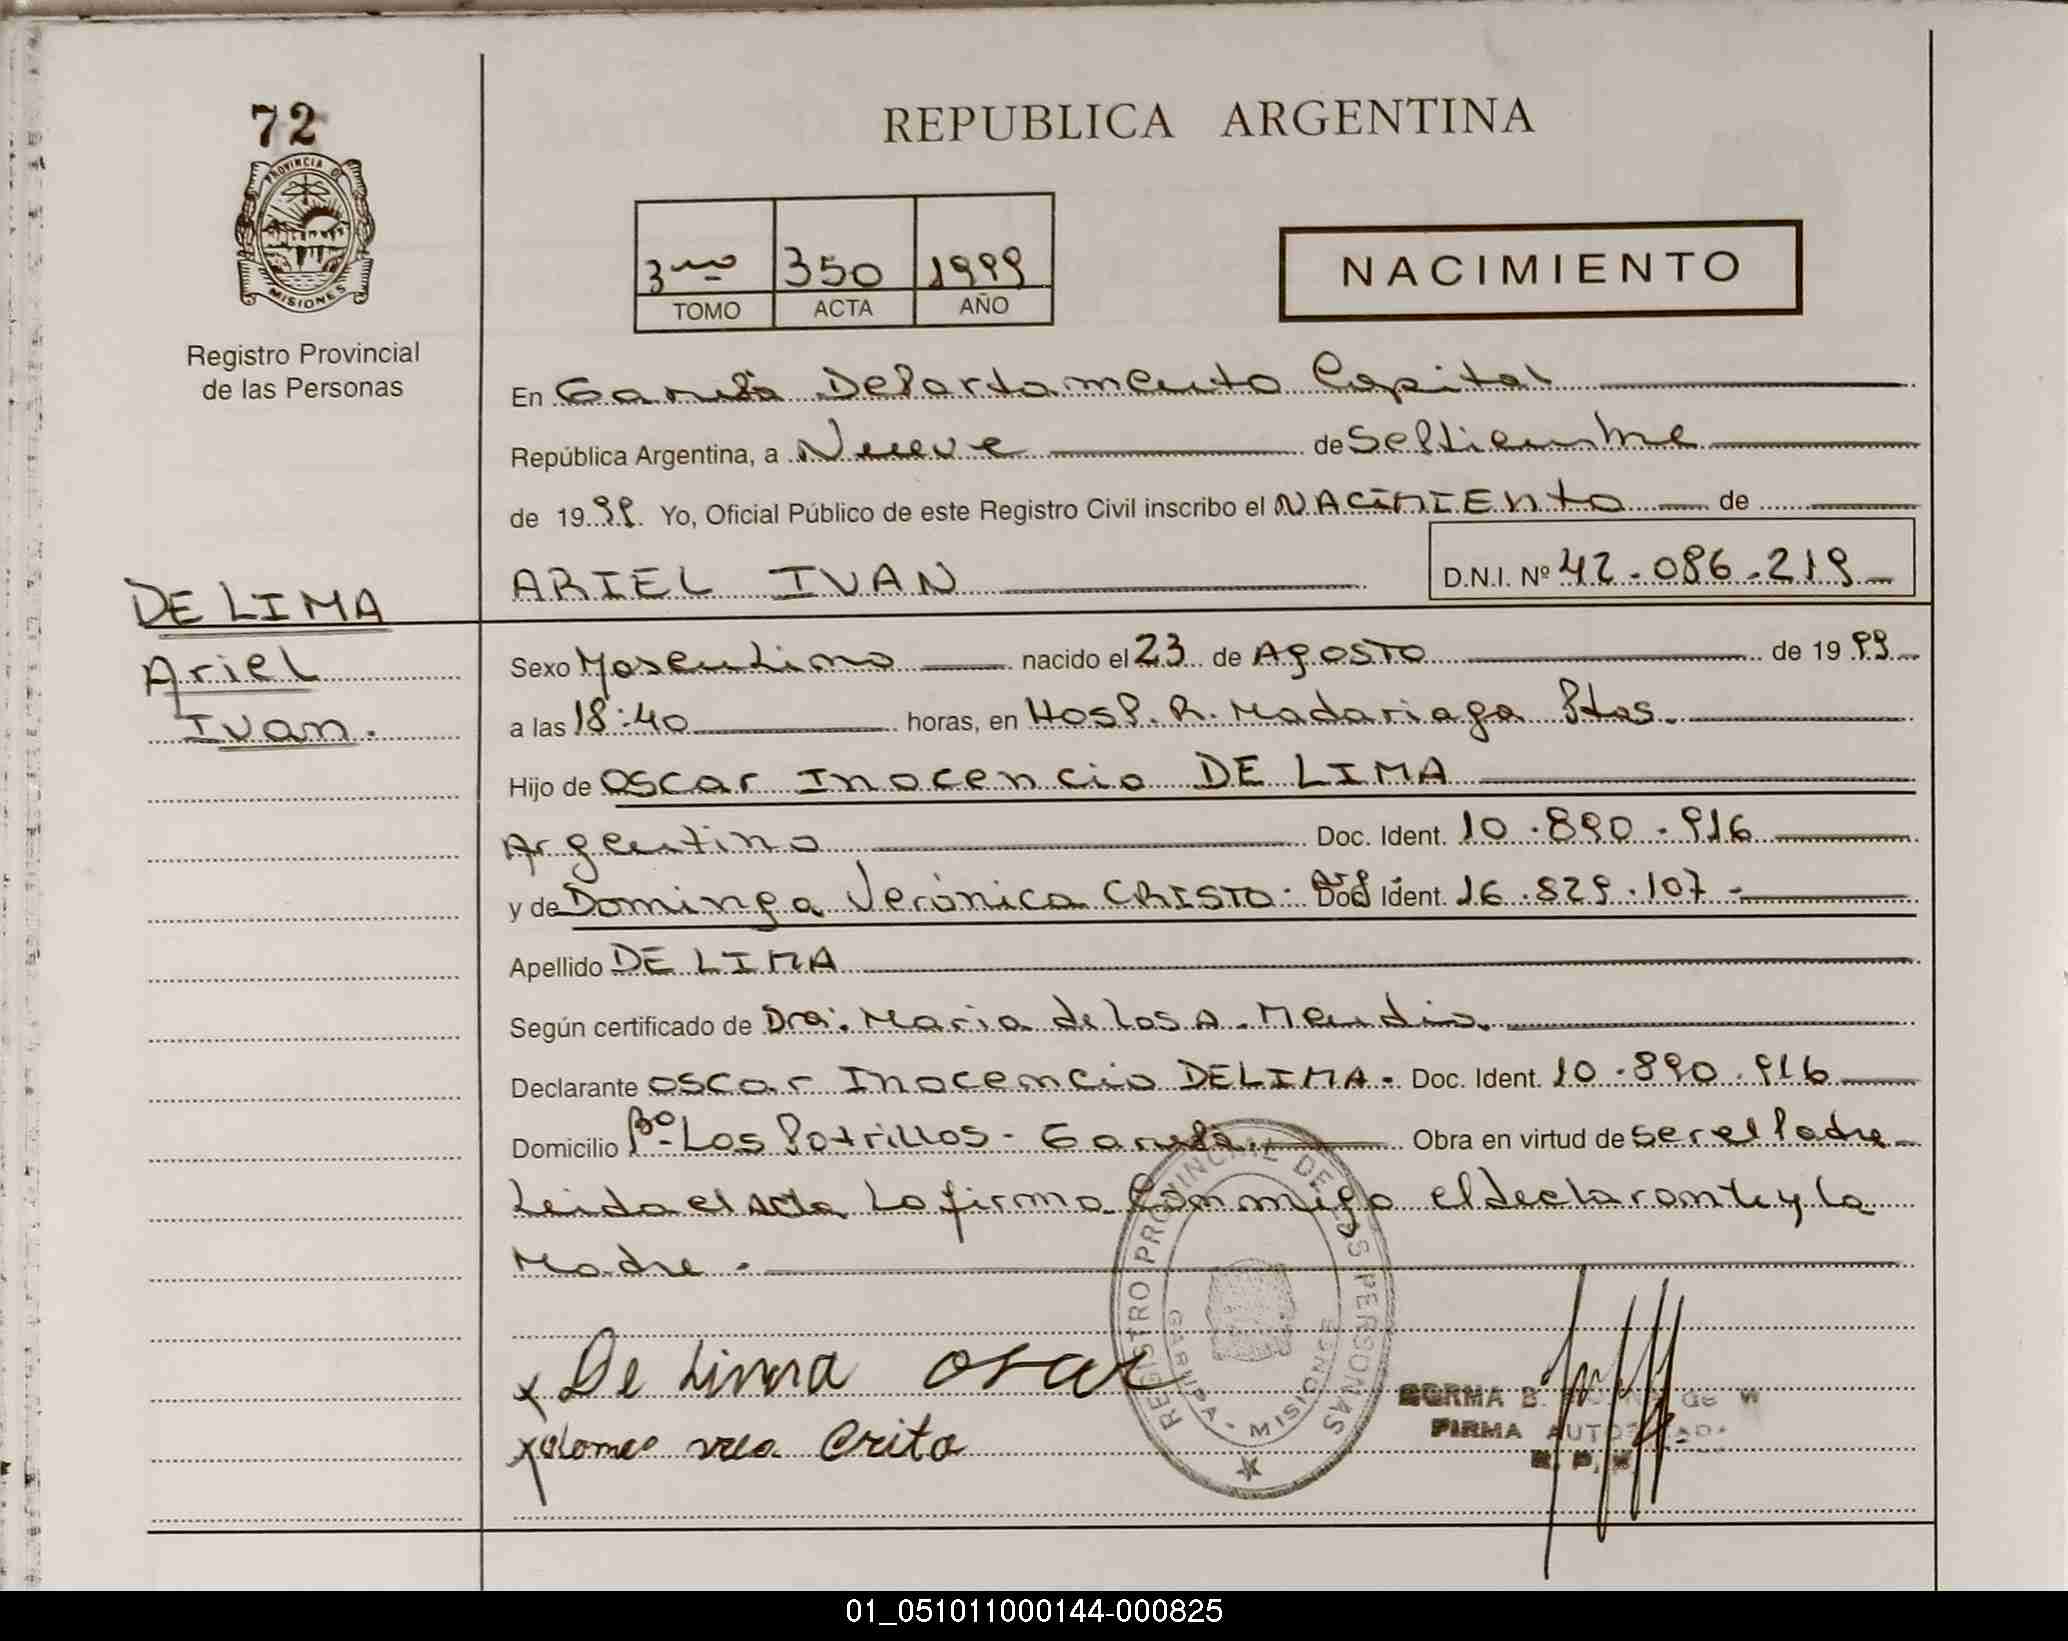 72
PROVINCIA DE
MISIONES
Registro Provincial
de las Personas
REPUBLICA ARGENTINA
3ro 350 1999
TOMO ACTA AÑO
NACIMIENTO
En Garupá Departamento Capital
República Argentina, a Nueve de Septiembre
de 1999. Yo, Oficial Público de este Registro Civil inscribo el NACIMIENTO de
ARIEL IVAN D.N.I. Nº 42.086.219
DE LIMA
Ariel
Ivan.
Sexo Masculino nacido el 23 de AgOSTO de 1999
a las 18:40 horas, en Hosp. R. Madariaga Pdas.
Hijo de Oscar Inocencio DE LIMA
Argentino Doc. Ident. 10.890.916
y de Dominga Verónica CRISTO. Arg. Doc Ident. 16.829.107.-
Apellido DE LIMA
Según certificado de Dra. Maria de los A.
Declarante Oscar Inocencio DE LIMA. Doc. Ident. 10.890.916
Domicilio Bº Los Potrillos - Garupá. Obra en virtud de ser el Padre
Leida el Acta La firma Conmigo el declarante y la
Madre.
REGISTRO PROVINCIAL DE LAS PERSONAS
GARUPA - MISIONES
x De Lima Oscar
x
NORMA B. de
FIRMA AUTORIZADA
01_051011000144-000825